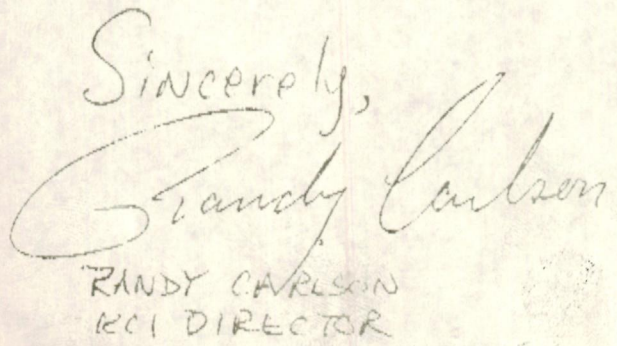 Sincerely,
Randy Carlson
RANDY CARLSON
KCI DIRECTOR